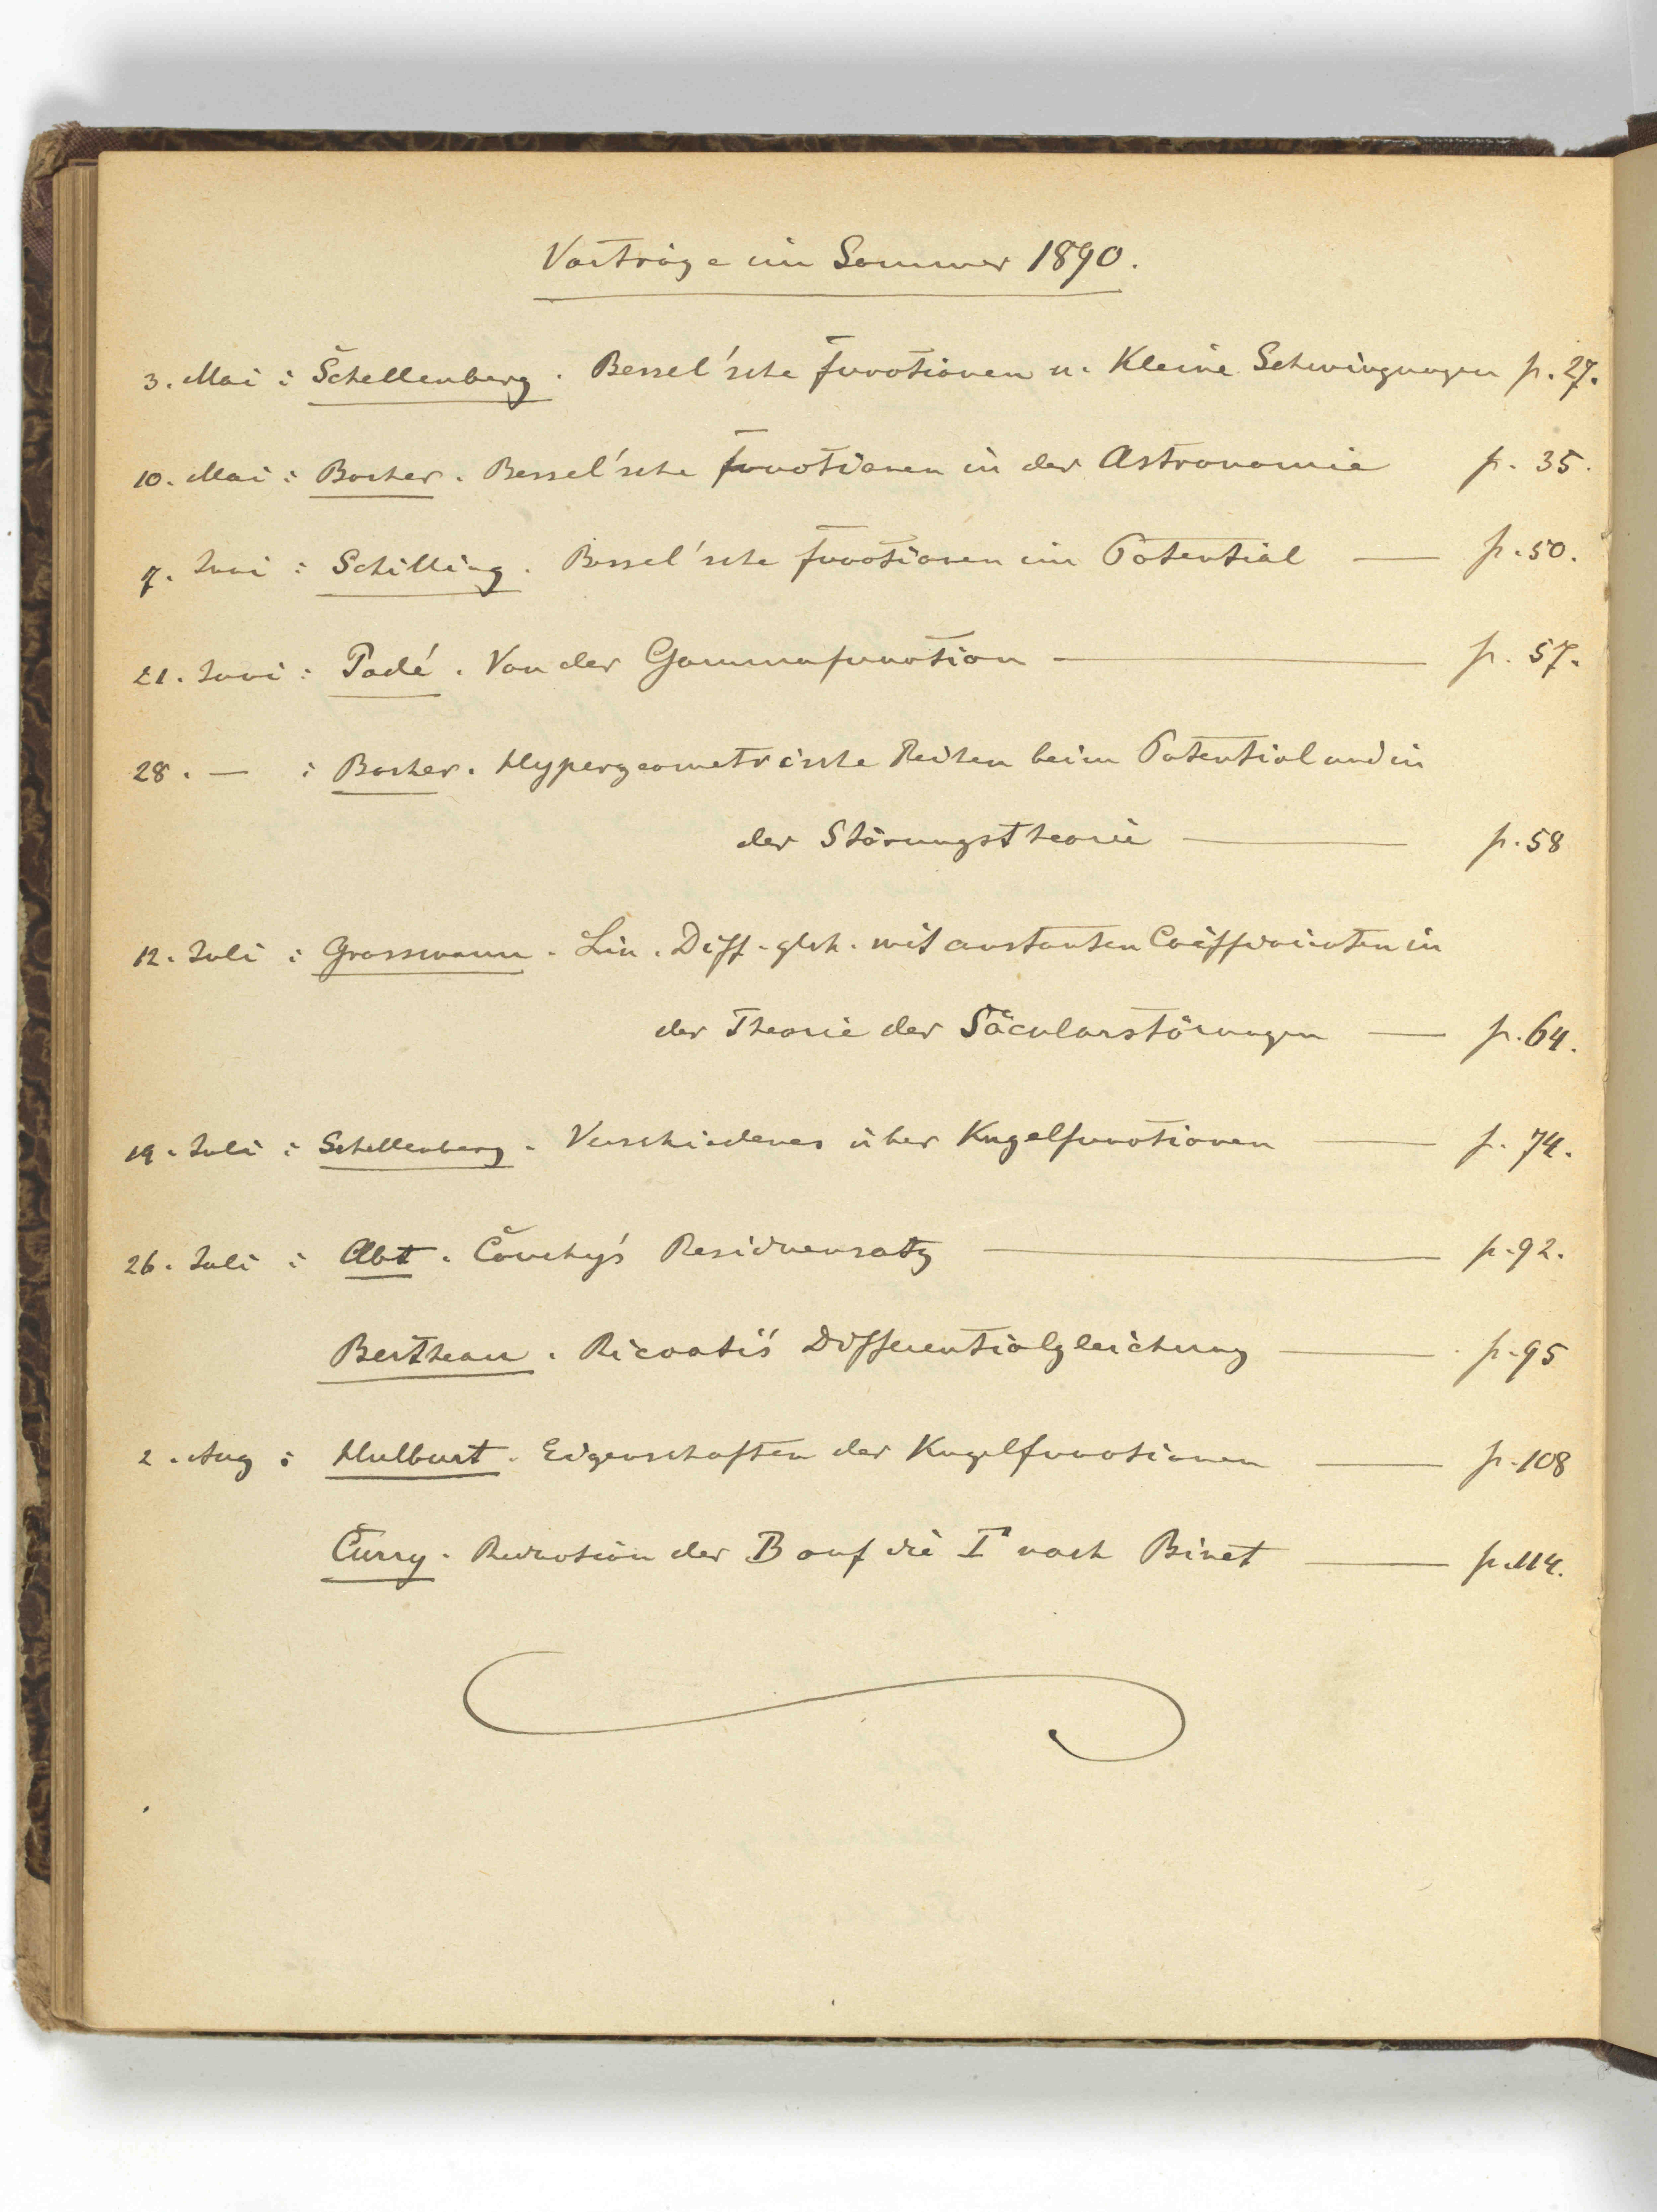 Vorträge im Sommer 1890.
3. Mai : Schellenberg. Bessel'sche Functionen u. Kleine Schwingungen p. 27.
10. Mai : Bocher. Bessel'sche Functionen in der Astronomie p. 35.
7. Juni : Schilling. Bessel'sche Functionen im Potential — p. 50.
21. Juni : Padé. Von der Gammafunction — p. 57.
28. — : Bocher. Hypergeometrische Reihen beim Potential und in
der Störungstheorie — p. 58
12. Juli : Grassmann. Lin. Diff. glch. mit constanten Coëfficienten in
der Theorie der Säcularstörungen — p. 64.
19. Juli : Schellenberg. Verschiedenes über Kugelfunctionen — p. 74.
26. Juli : Abt. Cauchy's Residuensatz — p. 92.
Bertheau. Riccati's Differentialgleichung — p. 95
2. Aug : Hulburt. Eigenschaften der Kugelfunctionen — p. 108
Curry. Reduction der B auf die Γ nach Binet — p. 114.